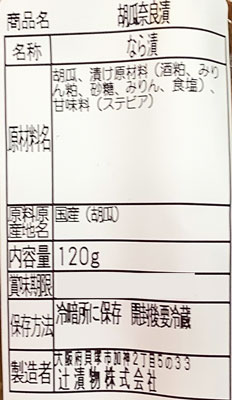 商品名 胡瓜奈良漬
名称 なら漬
原材料名 胡瓜、漬け原材料（酒粕、みり
ん粕、砂糖、みりん、食塩）、
甘味料（ステビア）
原料原産地名 国産（胡瓜）
内容量 120g
賞味期限
保存方法 冷暗所に保存 開封後要冷蔵
製造者 大阪府貝塚市加神2丁目5の33
辻漬物株式会社